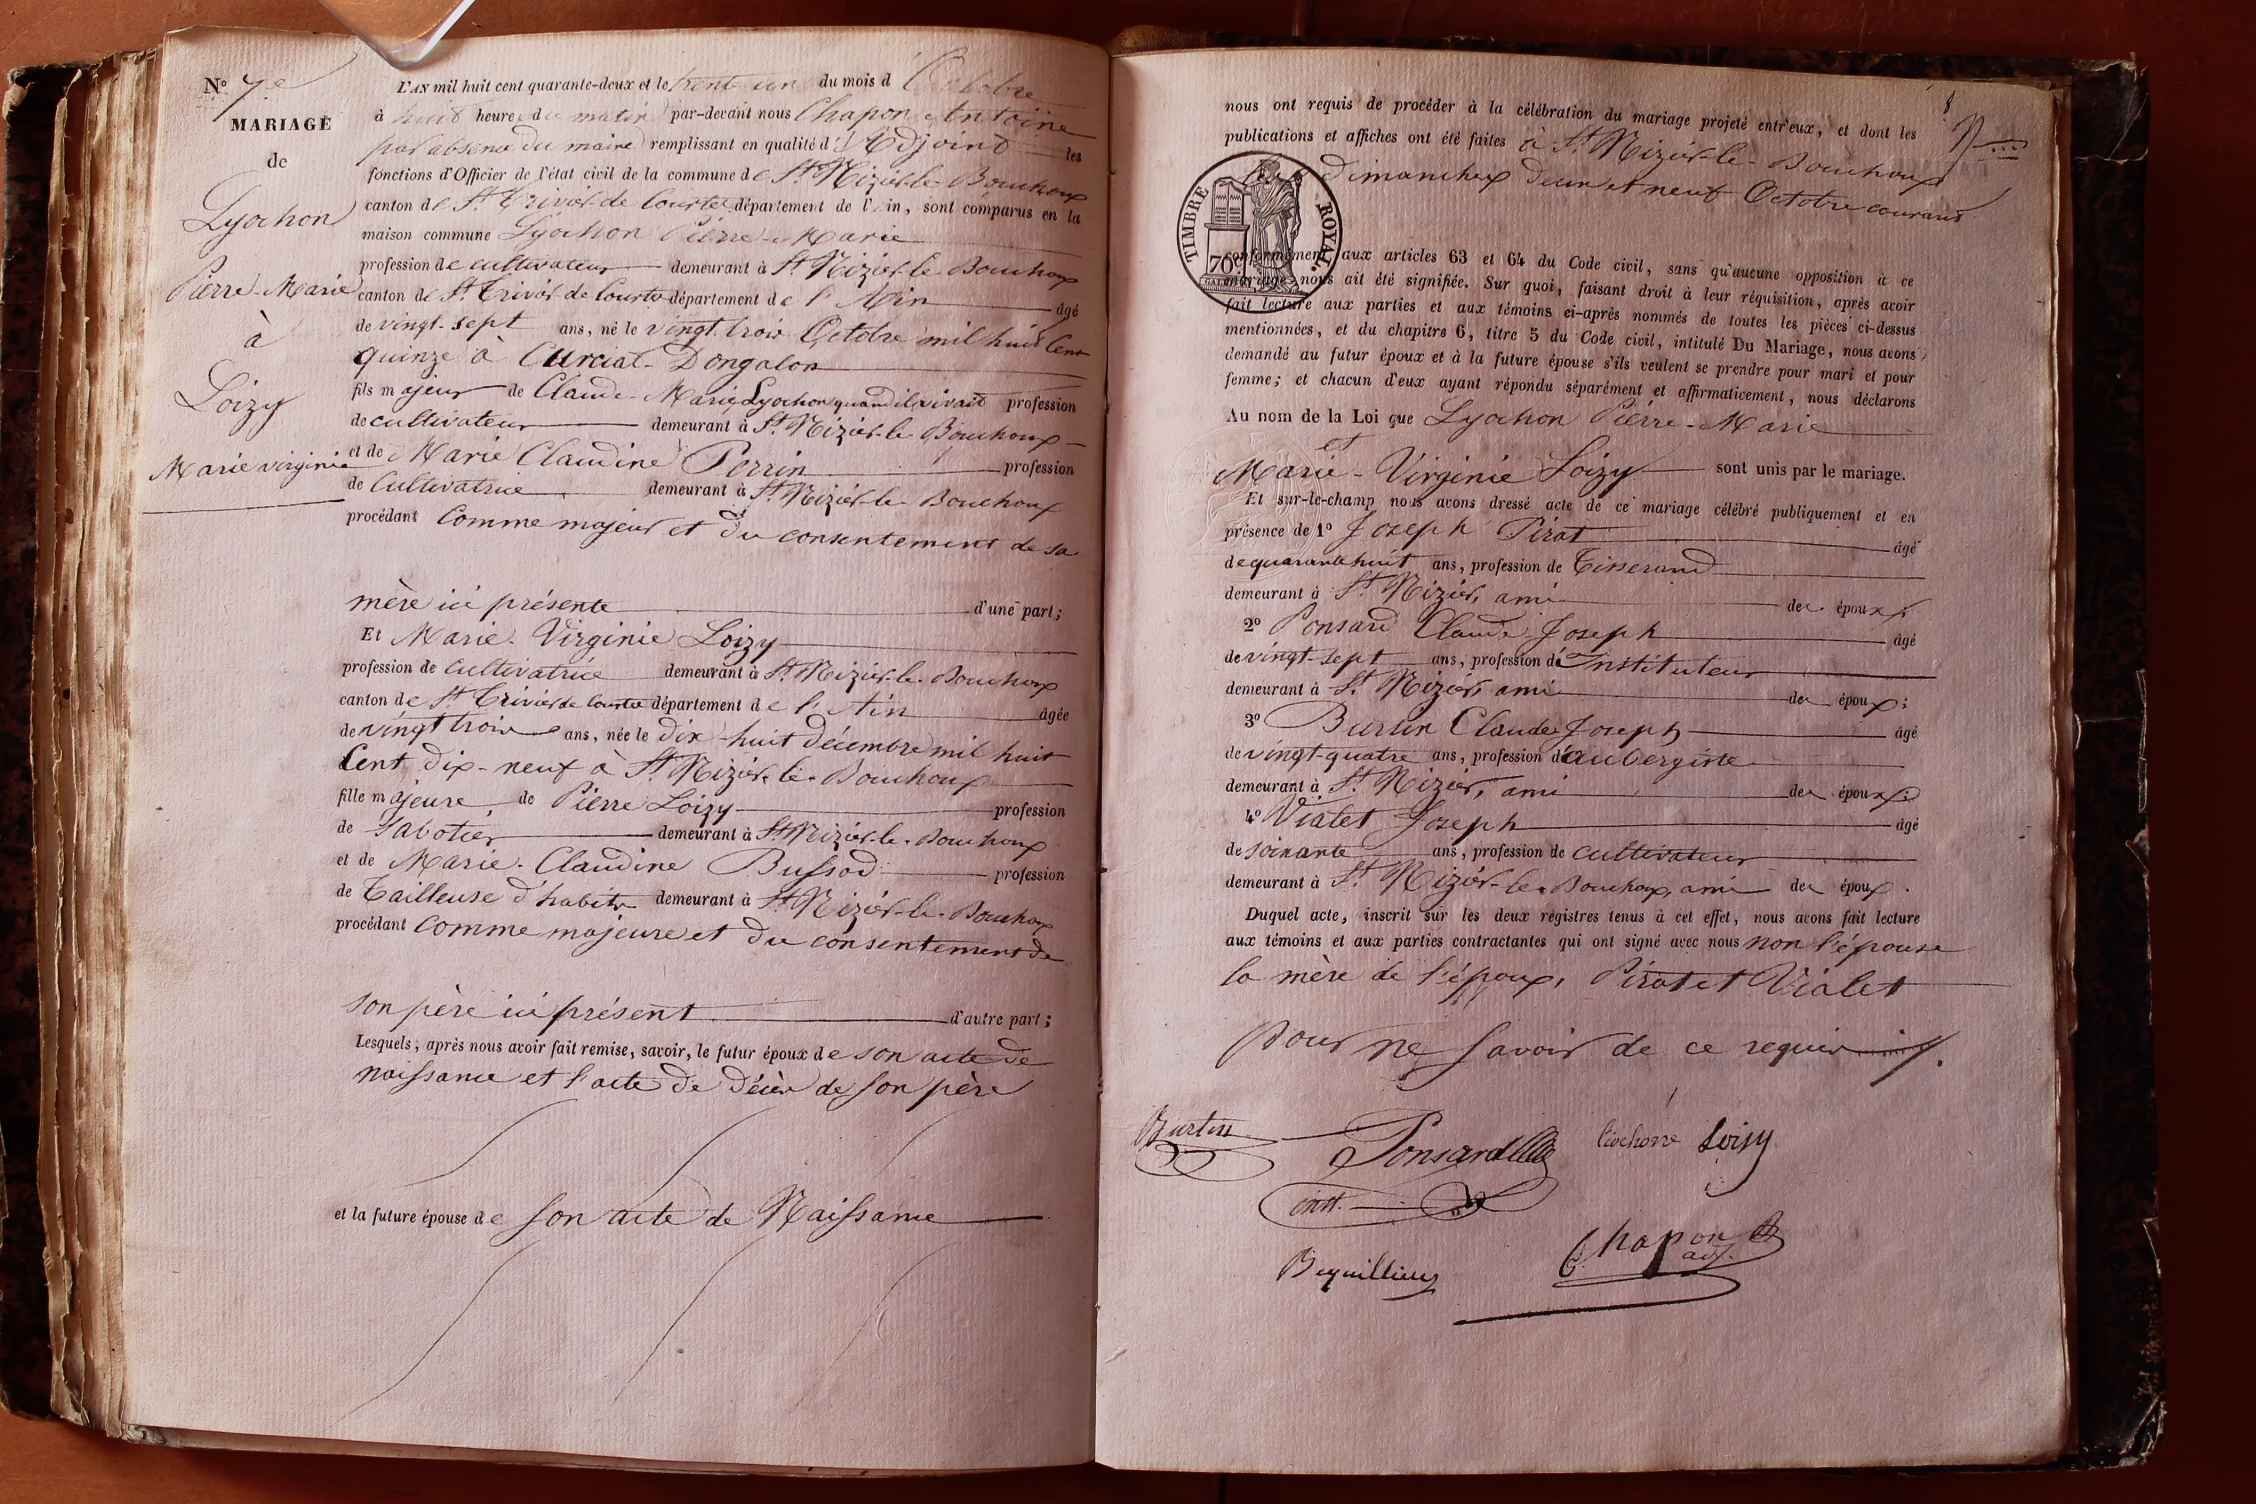 N.º 7.e
MARIAGE
de
Lyochon
Pierre-Marie
à
Loizy
Marie virginie
L'AN mil huit cent quarante-deux et le trent un du mois d'Octobre
à huit heures du matin par-devant nous Chapon Antoine
par absence du maire remplissant en qualité d'Adjoint les
fonctions d'Officier de l'état civil de la commune de St Nizier-le-Bouchoux
canton de St Trivier de Courtes département de l'Ain, sont comparus en la
maison commune Lyochon Pierre-Marie
profession de cultivateur demeurant à St Nizier-le-Bouchoux
canton de St Trivier de Courtes département de l'Ain âgé
de vingt-sept ans, né le vingt trois Octobre mil huit Cent
quinze à Curciat-Dongalon
fils majeur de Claude-Marie Lyochon quand il vivait profession
de cultivateur demeurant à St Nizier-le-Bouchoux
et de Marie Claudine Perrin profession
de Cultivatrice demeurant à St Nizier-le-Bouchoux
procédant comme majeur et du consentement de sa
mère ici présente d'une part;
Et Marie-Virginie Loizy
profession de cultivatrice demeurant à St Nizier-le-Bouchoux
canton de St Trivier de Courtes département de l'Ain âgée
de vingt trois ans, née le dix-huit décembre mil huit
Cent dix-neuf à St Nizier-le-Bouchoux
fille majeure de Pierre Loizy profession
de sabotier demeurant à St Nizier-le-Bouchoux
et de Marie-Claudine Bussod profession
de Tailleuse d'habits demeurant à St Nizier-le-Bouchoux
procédant comme majeure et du consentement de
son père ici présent d'autre part;
Lesquels, après nous avoir fait remise, savoir, le futur époux de son acte de
naissance et l'acte de décès de son père
et la future épouse de son acte de Naissance
8
nous ont requis de procéder à la célébration du mariage projeté entr'eux, et dont les
publications et affiches ont été faites à St Nizier-le-Bouchoux
dimanches deux et neuf Octobre courant
TIMBRE ROYAL.
70c
conformément aux articles 63 et 64 du Code civil, sans qu'aucune opposition à ce
mariage nous ait été signifiée. Sur quoi, faisant droit à leur réquisition, après avoir
fait lecture aux parties et aux témoins ci-après nommés de toutes les pièces ci-dessus
mentionnées, et du chapitre 6, titre 5 du Code civil, intitulé Du Mariage, nous avons
demandé au futur époux et à la future épouse s'ils veulent se prendre pour mari et pour
femme; et chacun d'eux ayant répondu séparément et affirmativement, nous déclarons
Au nom de la Loi que Lyochon Pierre-Marie
et
Marie-Virginie Loizy sont unis par le mariage.
Et sur-le-champ nous avons dressé acte de ce mariage célébré publiquement et en
présence de 1º Joseph Pirat âgé
de quarante huit ans, profession de Tisserand
demeurant à St Nizier, ami des époux;
2º Ponsard Claude Joseph âgé
de vingt-sept ans, profession d'Instituteur
demeurant à St Nizier, ami des époux;
3º Burtin Claude Joseph âgé
de vingt-quatre ans, profession d'aubergiste
demeurant à St Nizier, ami des époux;
4º Vialet Joseph âgé
de soixante ans, profession de cultivateur
demeurant à St Nizier-le-Bouchoux, ami des époux.
Duquel acte, inscrit sur les deux régistres tenus à cet effet, nous avons fait lecture
aux témoins et aux parties contractantes qui ont signé avec nous non l'épouse
la mère de l'époux, Pirat et Vialet
pour ne savoir de ce requis
Burtin Ponsard liochon Loisy
inst.
Chapon
adj.
Beguillieu